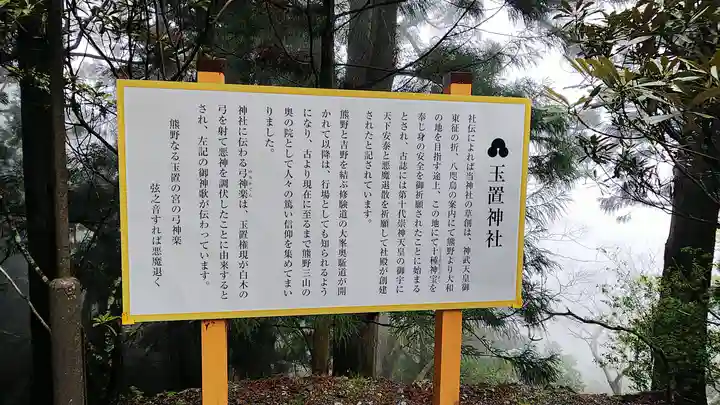 玉置神社
社伝によれば当神社の草創は、神武天皇御
東征の折、八咫烏の案内にて熊野より大和
の地を目指す途上、この地にて十種神宝を
奉じ身の安全を御祈願されたことに始まる
とされ、古誌には第十代崇神天皇の御宇に
天下安泰と悪魔退散を祈願して社殿が創建
されたと記されています。
熊野と吉野を結ぶ修験道の大峯奥駈道が開
かれて以降は、行場としても知られるよう
になり、古より現在に至るまで熊野三山の
奥の院として人々の篤い信仰を集めてまい
りました。
神社に伝わる弓神楽は、玉置権現が白木の
弓を射て悪神を調伏したことに由来すると
され、左記の御神歌が伝わっています。
熊野なる玉置の宮の弓神楽
弦之音すれば悪魔退く